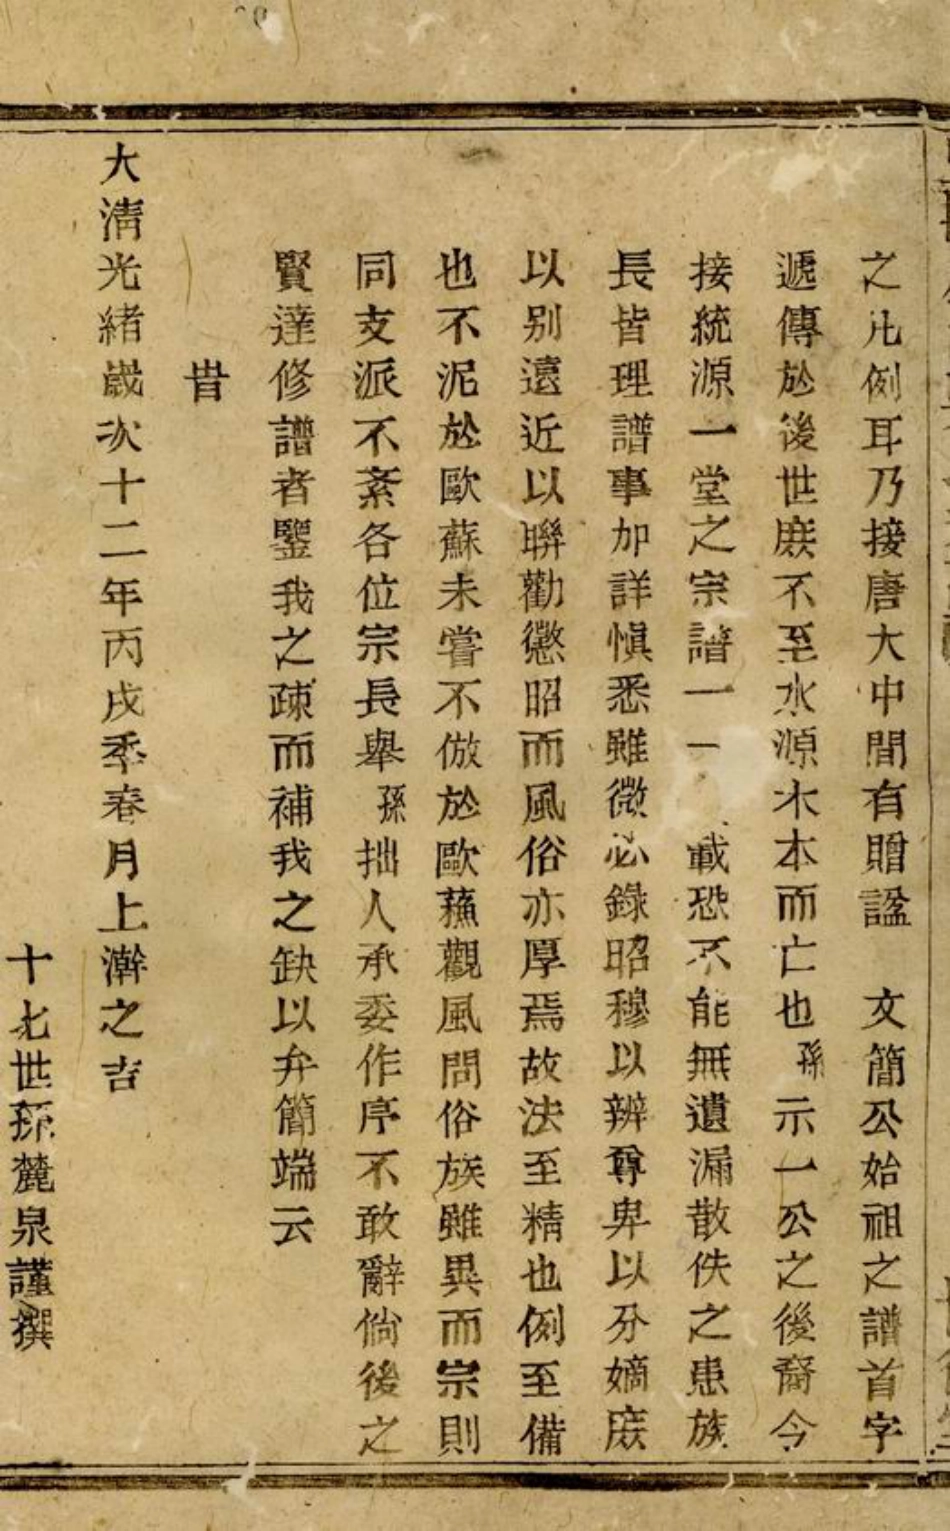 之凡例耳乃接唐大中間有贈諡　文簡公始祖之譜首字
遞傳於後世庶不至水源木本而亡也孫示一公之後裔今
接統源一堂之宗譜一一載恐不能無遺漏散佚之患族
長皆理譜事加詳慎悉雖微必錄昭穆以辨尊卑以分嫡庶
以别遠近以聯勸懲昭而風俗亦厚焉故法至精也例至備
也不泥於歐蘇未嘗不倣於歐蘓觀風問俗族雖異而宗則
同支派不紊各位宗長舉孫拙人承委作序不敢辭倘後之
賢達修譜者鑒我之疎而補我之缺以弁簡端云
旹
大清光緒嵗次十二年丙戌季春月上澣之吉
十七世孫麓泉謹撰